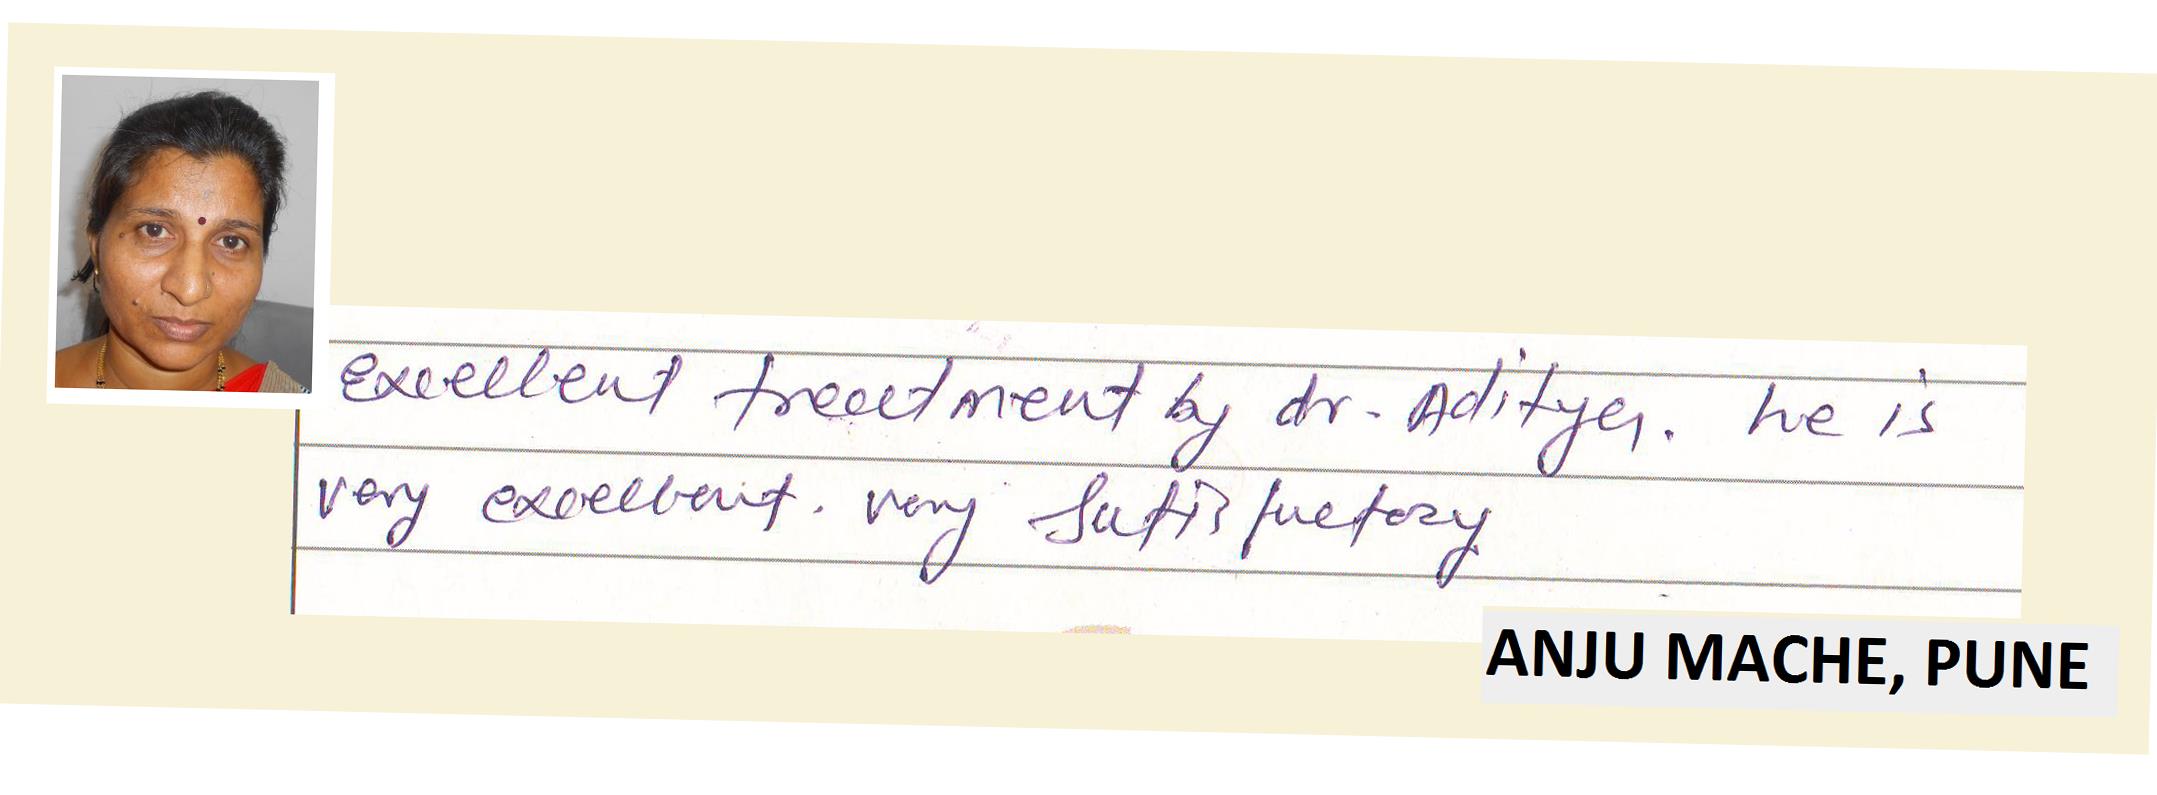 Excellent treatment by dr. Aditya. he is
very excellent. very Satisfactory
ANJU MACHE, PUNE